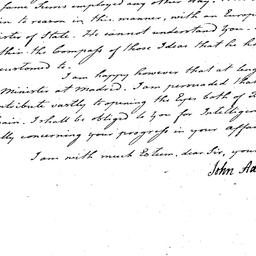 same Terms employed any other Way.
in to reason in this manner, with an Europe
ister of State. He cannot understand you.
thin the Compass of those Ideas that he ha
customed to.
I am happy however that at leng
Minister at Madrid. I am persuaded tha
ntribute vastly to opening the Eyes both of
ain. I shall be obliged to you for Intelligen
lly concerning your progress in your affai
I am with much Esteem, dear Sir, your
John Ad